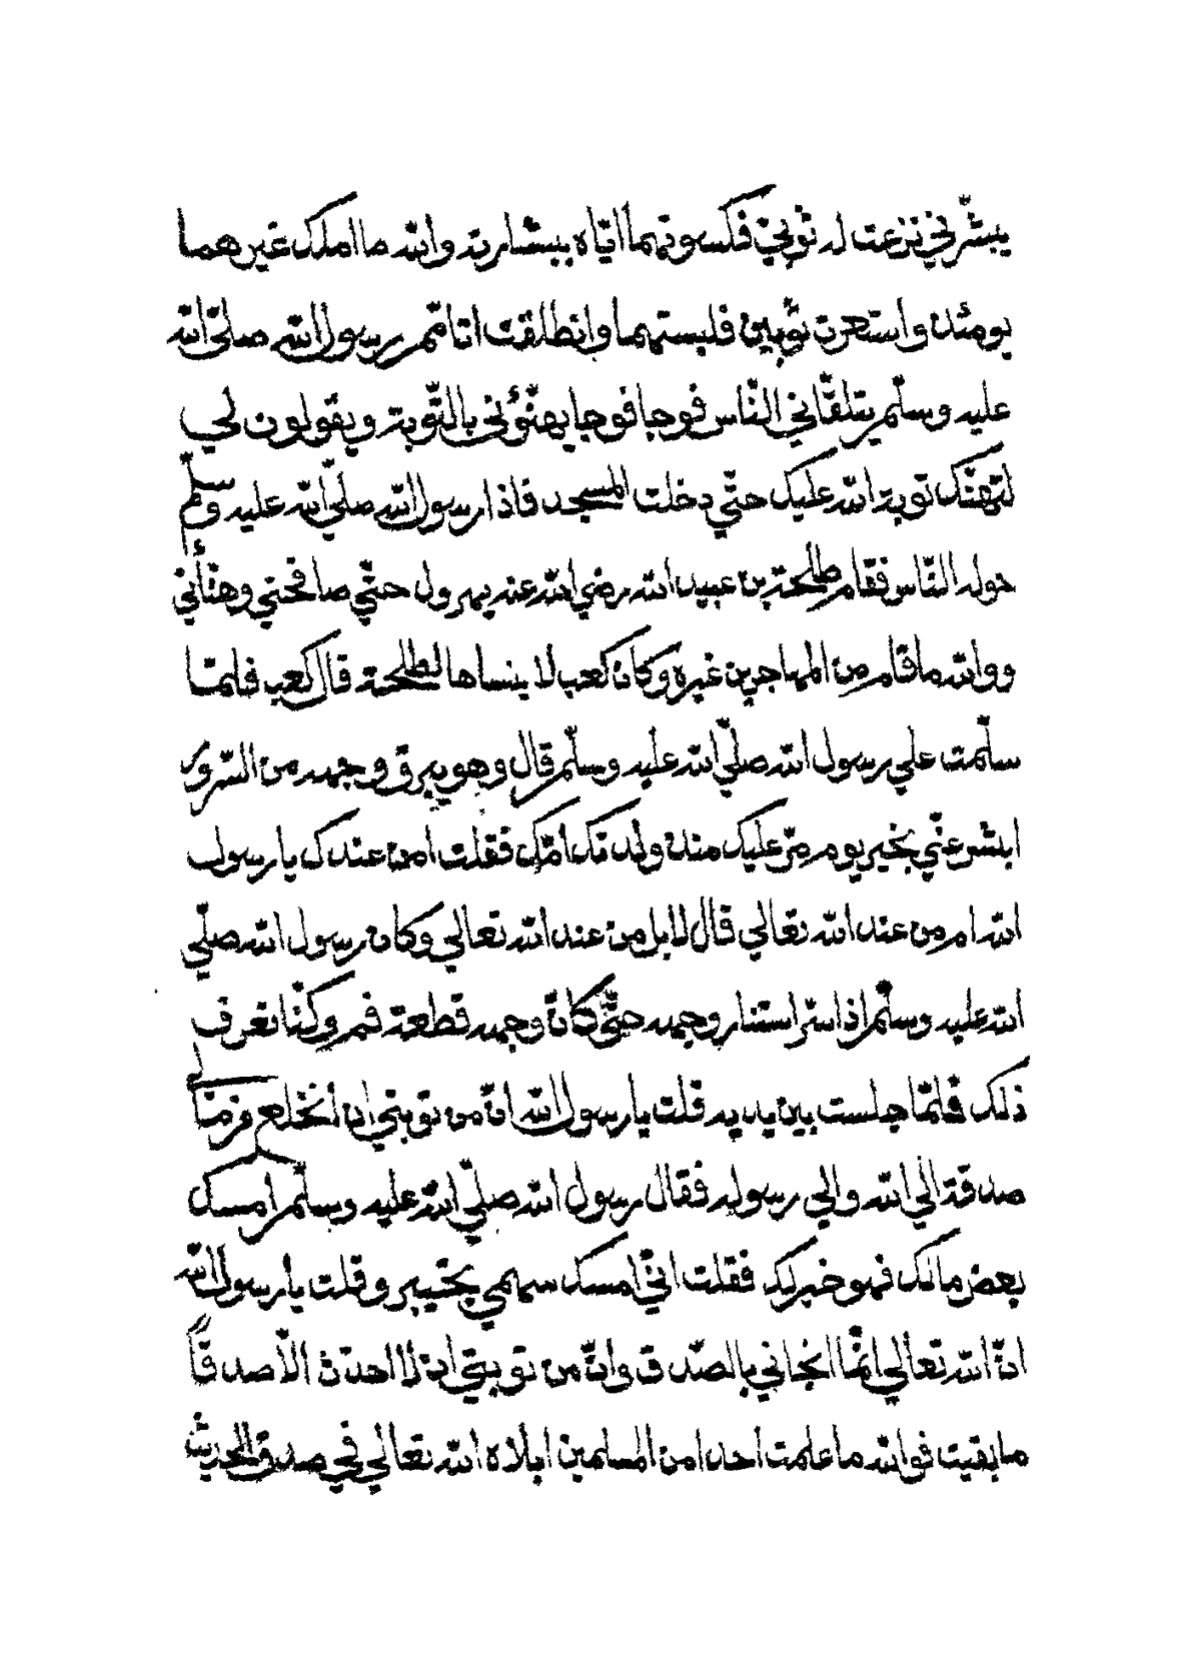 يبشّرني نزعت له ثوبيّ فكسوتهما اتاه ببشارته والله ما املك غيرهما
يومئذ واستعرت ثوبين فلبستهما وانطلقت اتامّم رسول الله صلّى الله
عليه وسلّم يتلقّاني النّاس فوجا فوجا يهنّؤني بالتّوبة ويقولون لي
لتهنّك توبة الله عليك حتّي دخلت المسجد فاذا رسول الله صلّي الله عليه وسلّم
حوله النّاس فقام طلحة بن عبيد الله رضي الله عنه يهرول حتّي صافحني وهنّأني
ووالله ما قام من المهاجرين غيره وكان كعب لا ينساها لطلحة قال كعب فلمّا
سلّمت علي رسول الله صلّي الله عليه وسلّم قال وهو يبرق وجهه من السّرور
ابشر عنّي بخير يوم مرّ عليك منذ ولدتك امّك فقلت امن عندك يا رسول
الله ام من عند الله تعالي قال لا بل من عند الله تعالي وكان رسول الله صلّي
الله عليه وسلّم اذا سرّ استنار وجهه حتّي كانّ وجهه قطعة قمر وكنّا نعرف
ذلك فلمّا جلست بين يديه قلت يا رسول الله انّ من توبتي ان أنخلع من مالي
صدقة الي الله والي رسوله فقال رسول الله صلّي الله عليه وسلّم امسك
بعض مالك فهو خير لك فقلت انّي امسك سهمي بخيبر وقلت يا رسول الله
انّ الله تعالي انّما انجاني بالصّدق وانّ من توبتي ان لا احدّث الّا صدقاً
ما بقيت فوالله ما علمت احدا من المسلمين ابلاه الله تعالي في صدق الحديث